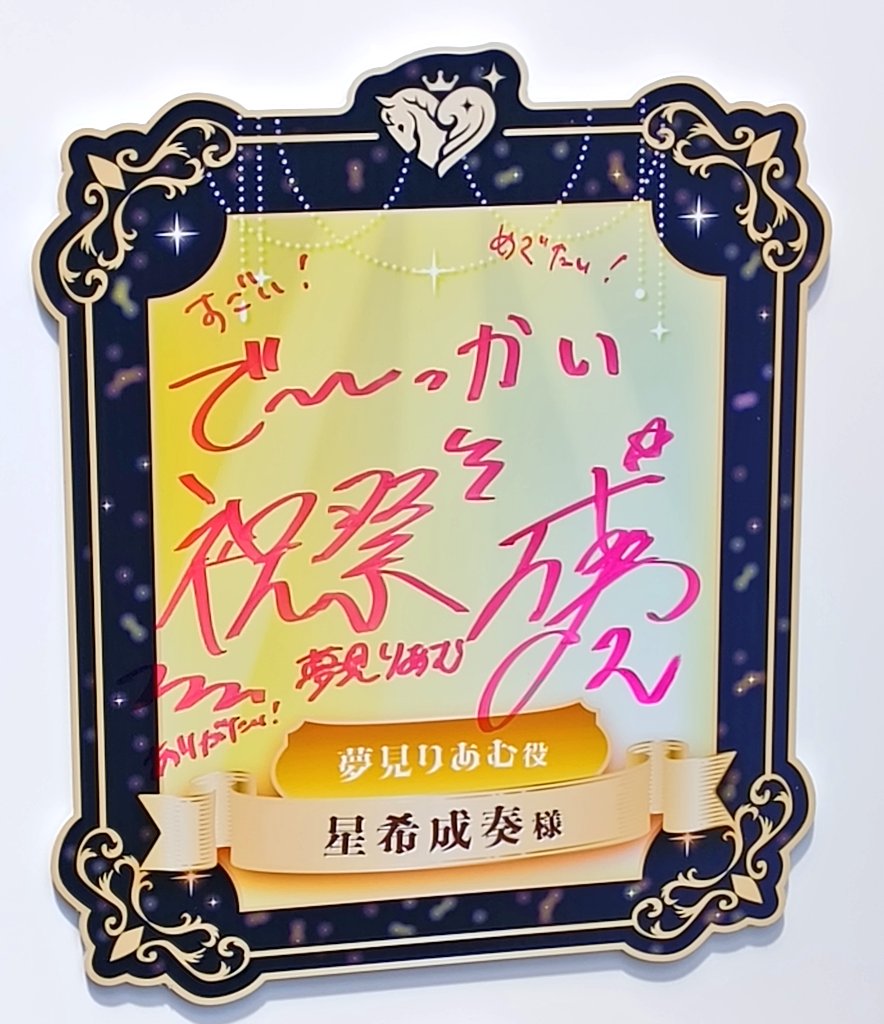 すごい！
めでたい！
で〜〜っかい
祝祭
夢見りあむ
ありがたい！
夢見りあむ役
星希成奏様